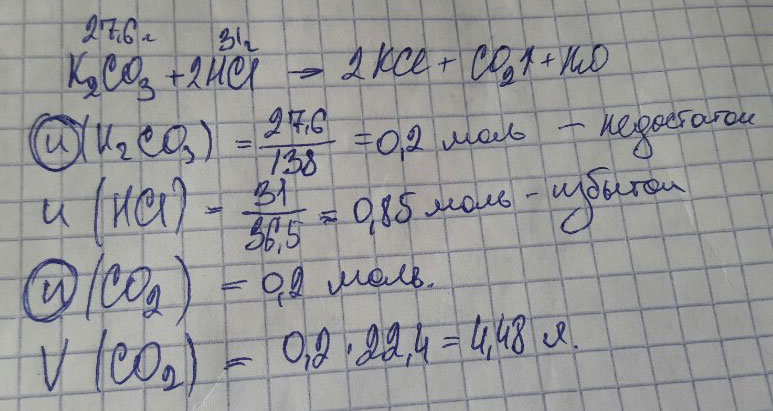 27,6 г 31г
K₂CO₃ + 2HCl → 2KCl + CO₂↑ + H₂O
n (K₂CO₃) = 27,6/138 = 0,2 моль – недостаток
n (HCl) = 31/36,5 = 0,85 моль – избыток
n (CO₂) = 0,2 моль.
V (CO₂) = 0,2 · 22,4 = 4,48 л.